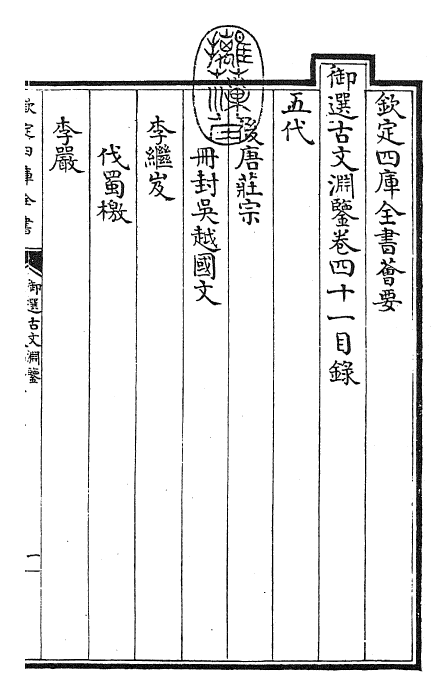 欽定四庫全書薈要
御選古文淵鑒卷四十一目錄
五代
後唐莊宗
冊封吳越國文
李繼岌
伐蜀檄
李嚴
欽定四庫全書
御選古文淵鑒
一